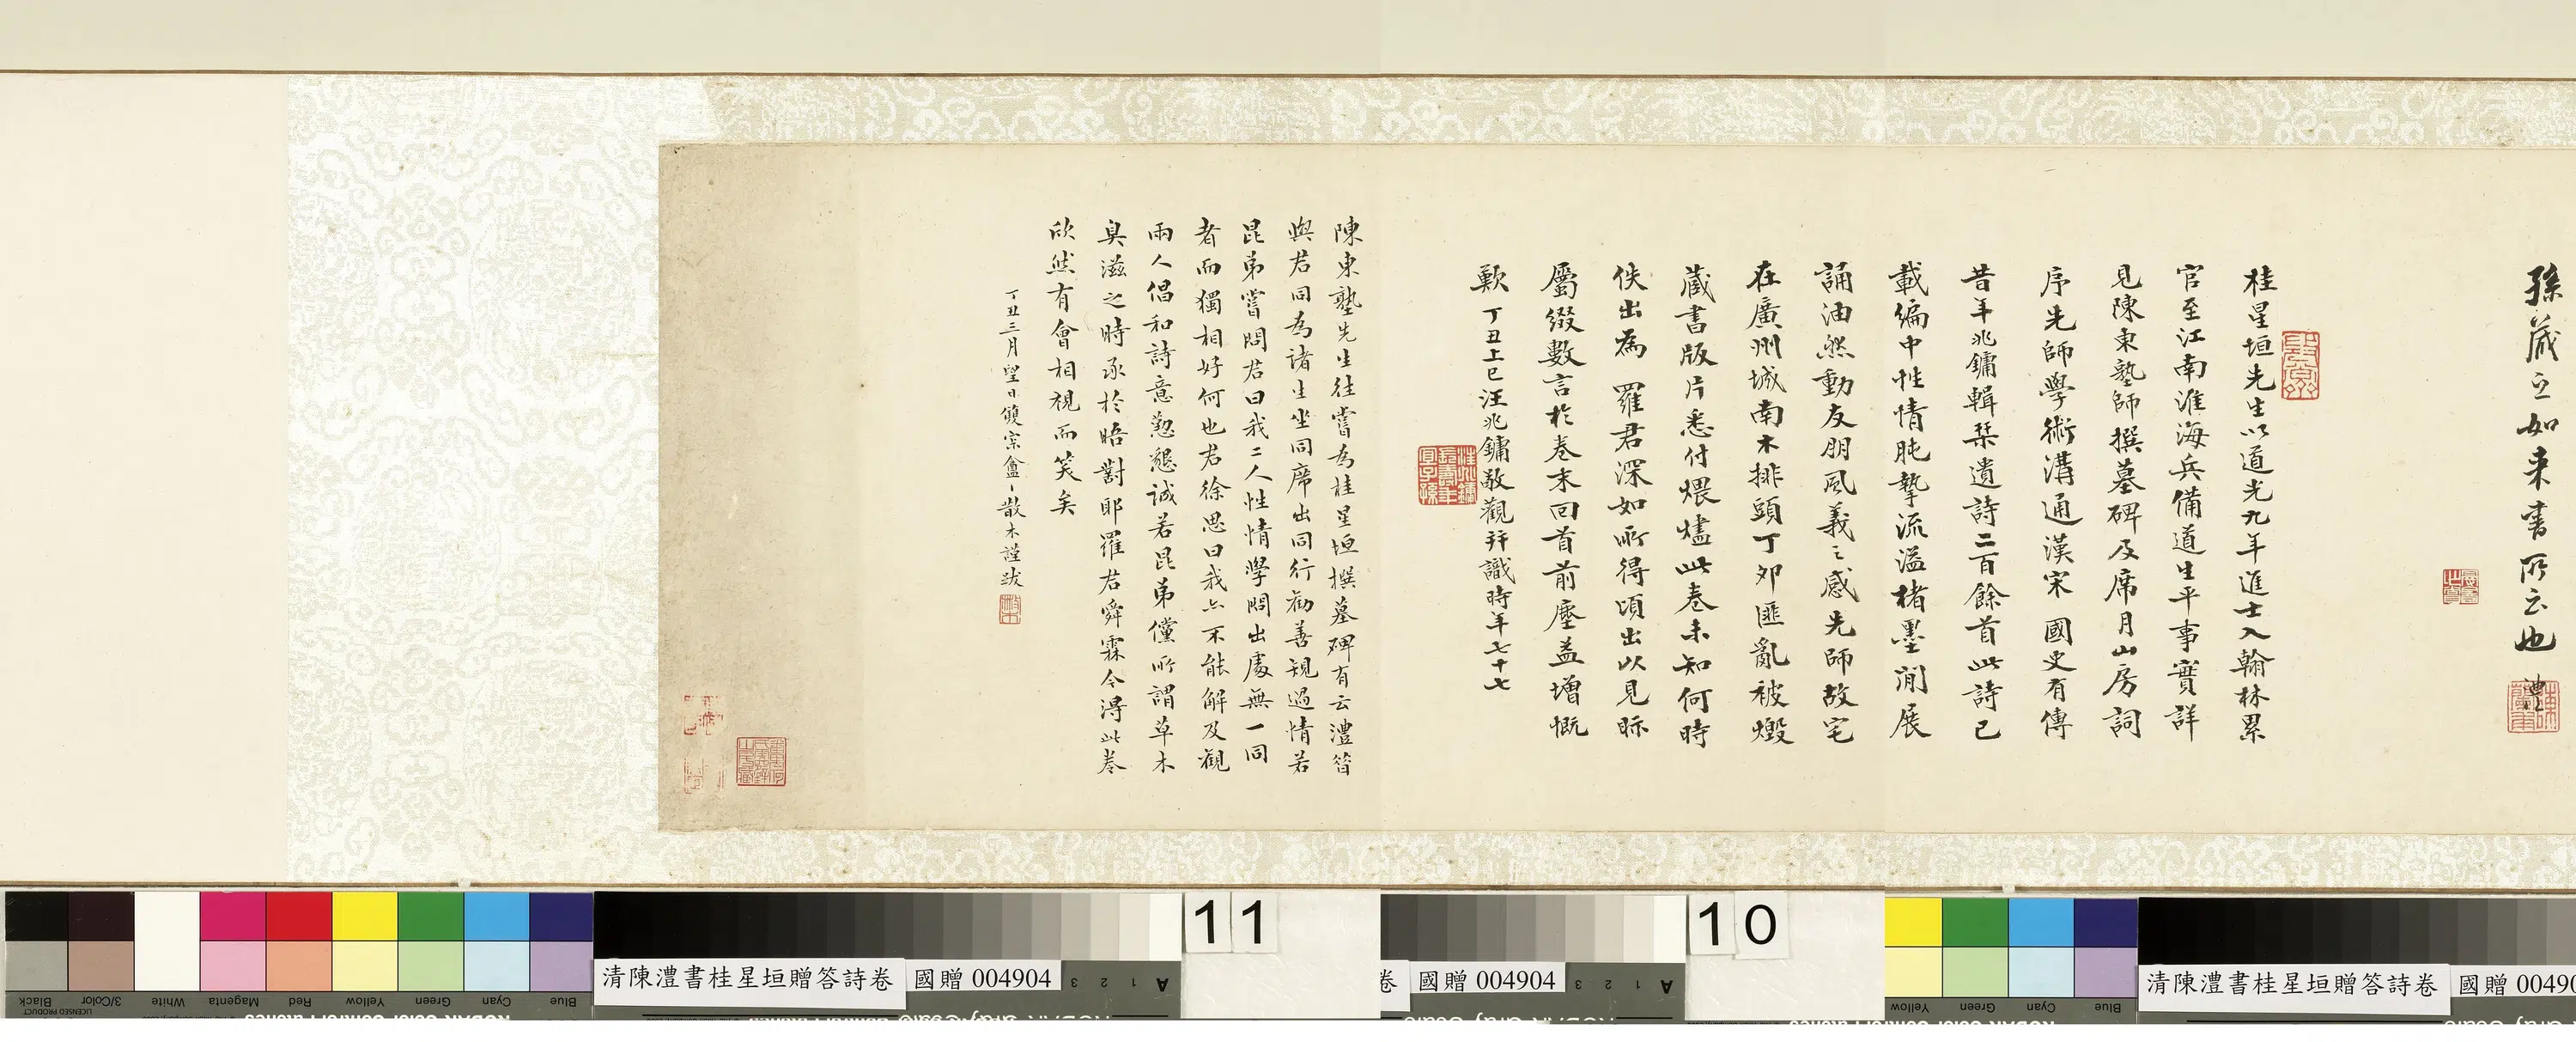 孫葳之如來書所云也 澧
桂星垣先生以道光九年進士入翰林累
官至江南淮海兵備道生平事實詳
見陳東塾師撰墓碑及席月山房詞
序先師學術溝通漢宋 國史有傳
昔年兆鏞輯棐遺詩二百餘首此詩已
載編中性情肫摯流溢楮墨間展
誦油然動友朋風義之感先師故宅
在廣州城南木排頭丁卯匪亂被燬
藏書版片悉付煨燼此卷未知何時
佚出為 羅君深如所得頃出以見眎
屬綴數言於卷末回首前塵益增慨
歎 丁丑上巳汪兆鏞敬觀拜識時年七十七
陳東塾先生往嘗為桂星垣撰墓碑有云澧昔
與君同為諸生坐同席出同行勸善規過情若
昆弟嘗問君曰我二人性情學問出處無一同
者而獨相好何也君徐思曰我亦不能解及觀
兩人倡和詩意懃懇誠若昆弟儻所謂草木
臭滋之時承於晤對耶羅君舜霖今得此卷
欣然有會相視而笑矣
丁丑三月望日散木謹跋
清陳澧書桂星垣贈答詩卷 國贈 004904
11
卷 國贈 004904
10
清陳澧書桂星垣贈答詩卷 國贈 00490
Black 3/Color White Magenta Red Yellow Green Cyan Blue
A 1 2 3
A 1 2 3
Yellow Green Cyan Blue